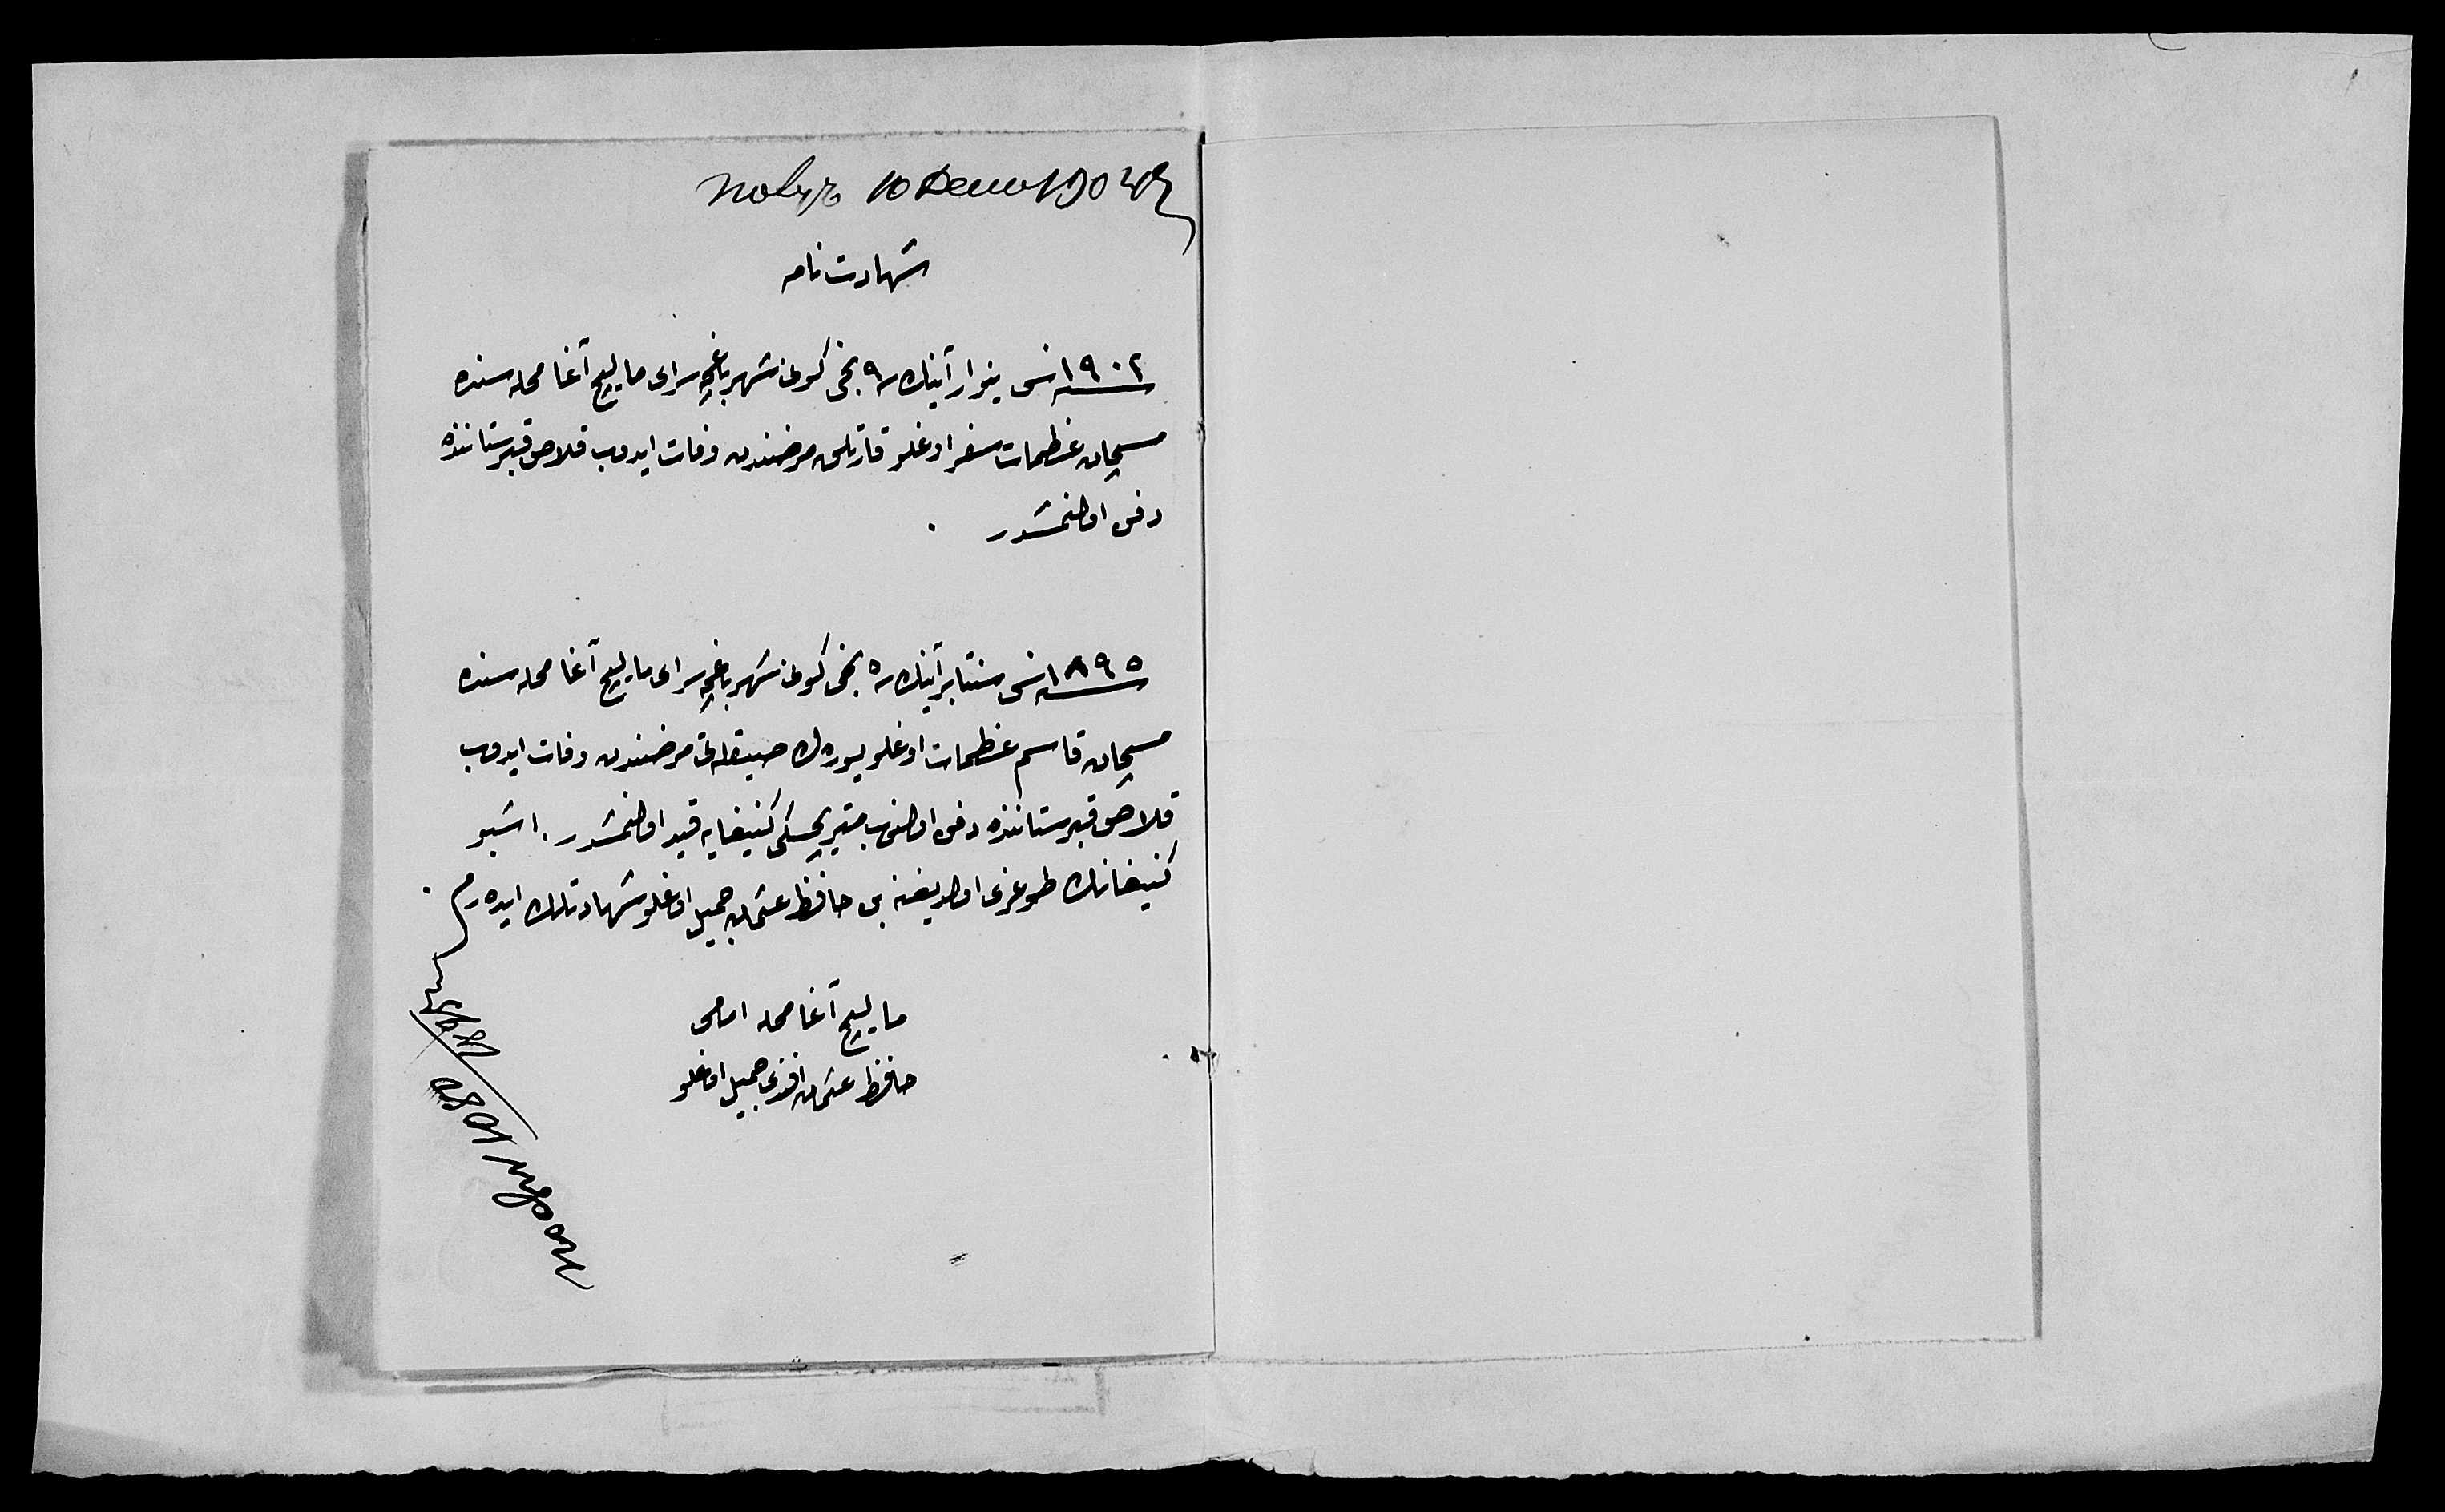 10 1904
شهادت نامه
١٩٠٢ نسی ینوار آینڭ ٩ نجی کونی شهر باغچه سرای مالیچ آغا محله سنده
مسچان عظمات سفر اوغلو قارتلق مرضندن وفات ایدوب قبرستاننده
دفن اولنمشدر .
١٨٩٥ نسی سنتابر آینڭ ٥ نجی کونی شهر باغچه سرای مالیچ آغا محله سنده
مسچان قاسم عظمات اوغلو یورەك مرضندن وفات ایدوب
قبرستاننده دفن اولنوب متیریچسكی كنیغایه قید اولنمشدر . اشبو
كنیغانڭ طوغری اولدیغنه بن حافظ عثمان جمیل اوغلو شهادتلك ایده رم .
مالیچ آغا محله امامی
حافظ عثمان افندی جمیل اوغلو